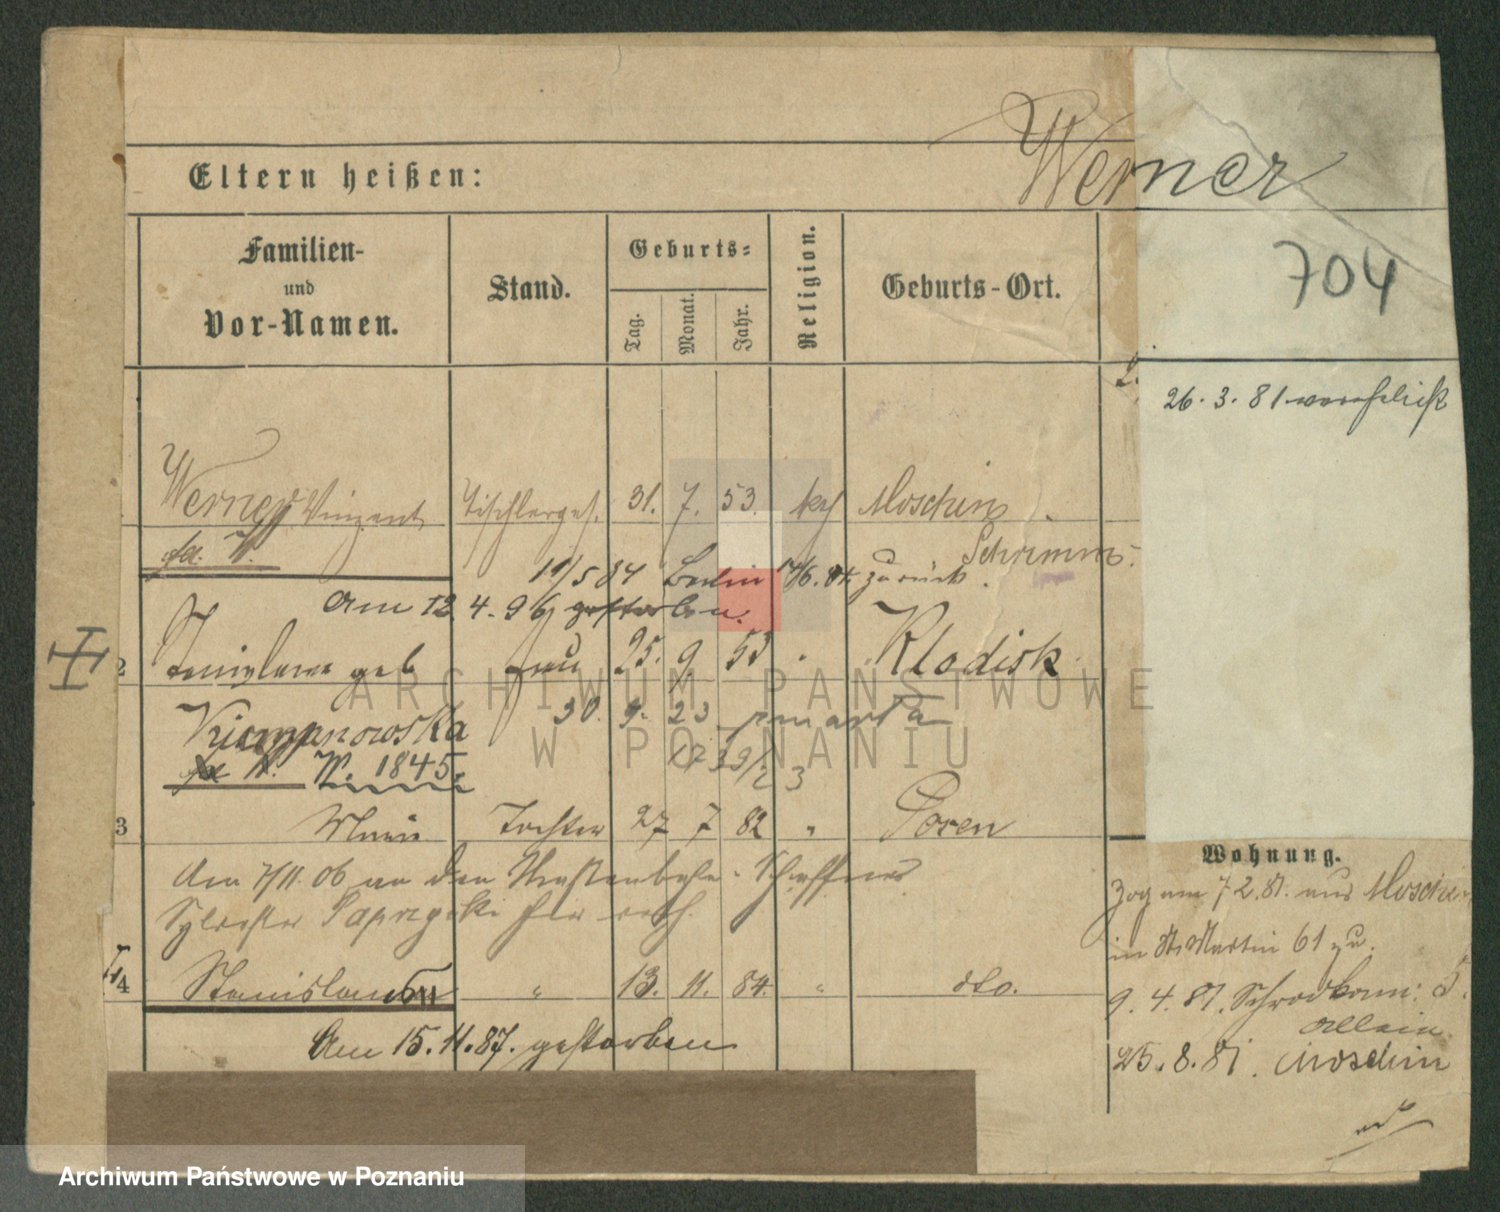 Werner
Eltern heißen:
704
Familien-
und
Vor-Namen.
Stand.
Geburts-
Tag.
Monat.
Jahr.
Religion.
Geburts-Ort.
26. 3. 81
Werner Vinzent Tischlerges. 31. 7. 53. kath Moschin
Schrimm.
19/5 84 Berlin 17/6. 84. zurück.
Am 12. 4. 96 gestorben.
2 geb Frau 25. 9 53 Klodisk
30. 9. 23
W. 1845
3 Marie Tochter 27 7 82 " Posen
Am 7/11. 06 an den Straßenbahn-Schaffner
Sylvester
4 Stanislaus " 13. 11. 84. " dto.
Am 15. 11. 87. gestorben
Wohnung.
Zog am 7. 2. 81. aus Moschin
in St. Martin 61 zu.
9. 4. 81. 5.
allein
25. 8. 81. Moschin
ARCHIWUM PAŃSTWOWE
W POZNANIU
Archiwum Państwowe w Poznaniu